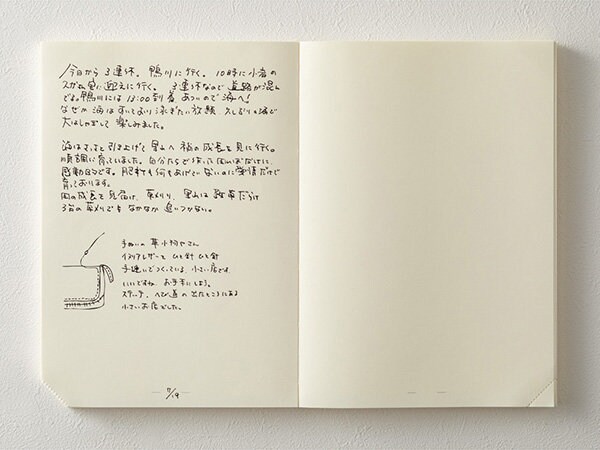 今日から3連休。鴨川に行く。10時に小倉の
迎えに行く。3連休なので道路が混ん
でる。鴨川には13:00到着。あついので海へ!
なぜか海はすいており泳ぎたい放題
大はしゃぎして楽しみました。
海はさっと引き上げて里山へ稲の成長を見に行く。
順調に育っていました。自分たちで作った田んぼだけに、
感動的です。肥料も何もあげていないのに愛情だけで
育っております。
田の成長を見届け、草刈り。里山は雑草だらけ
3台の草刈りでもなかなか追いつかない。
手ぬいの革小物やさん
イタリアレザーをひと針ひと針
手縫いでつくっている小さい店です
いいですね。お手本にしよう。
ステッチ、へび道の出たところにある
小さいお店でした。
7/19